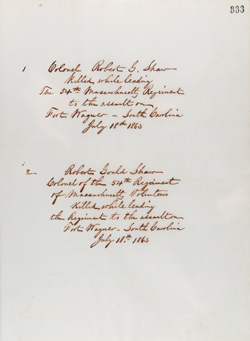 333
1
Colonel Robert G. Shaw
Killed while leading
The 54th Massachusetts Regiment
to the assault on
Fort Wagner - South Carolina
July 18th 1863
2
Robert Gould Shaw
Colonel of the 54th Regiment
of Massachusetts Volunteers
Killed while leading
the Regiment to the assault on
Fort Wagner - South Carolina
July 18th 1863